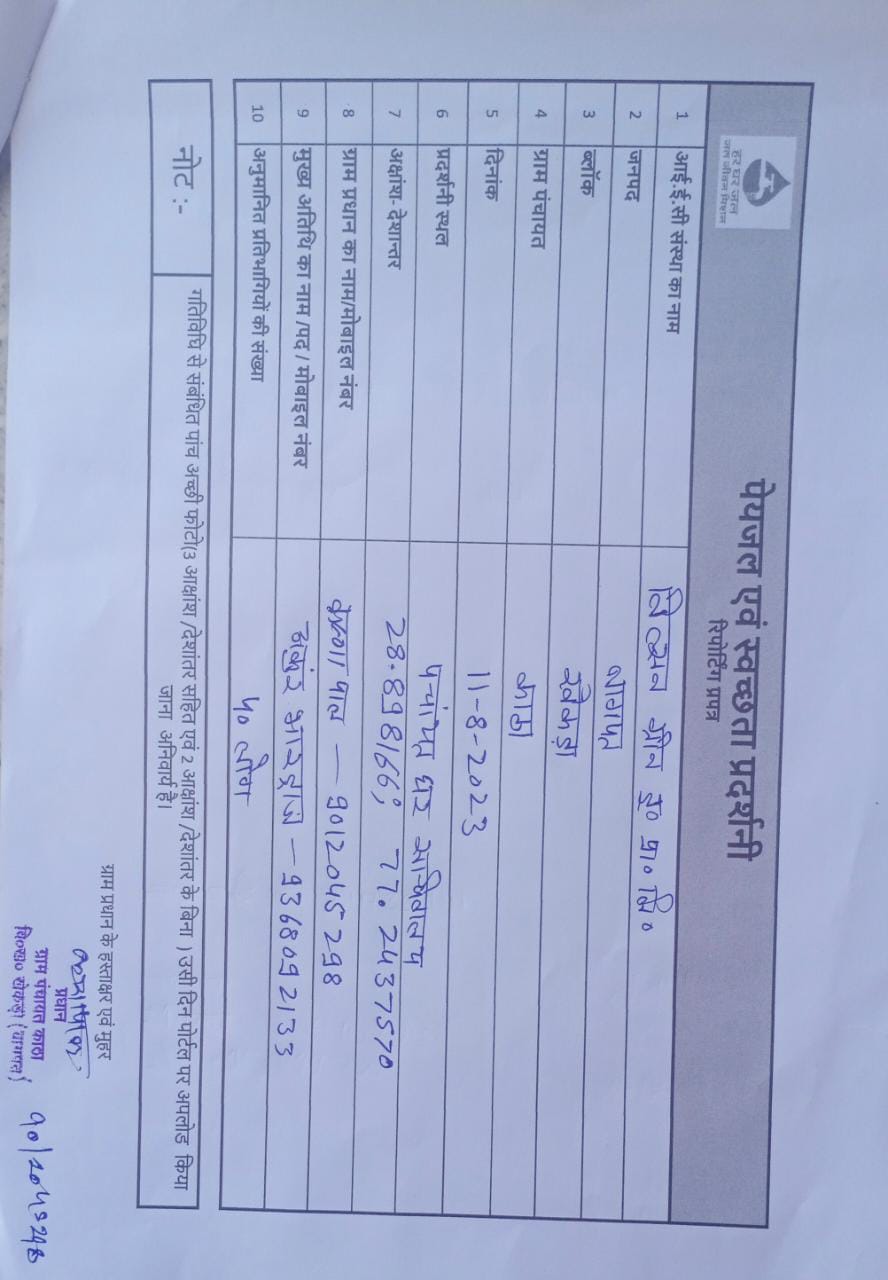 हर घर जल
जल जीवन मिशन
पेयजल एवं स्वच्छता प्रदर्शनी
रिपोर्टिंग प्रपत्र
1 आई.ई.सी संस्था का नाम ग्रीन इ० प्रा० लि०
2 जनपद बागपत
3 ब्लॉक खेकड़ा
4 ग्राम पंचायत काठा
5 दिनांक 11-8-2023
6 प्रदर्शनी स्थल घर
7 अक्षांश-देशान्तर 28.898166, 77.2437570
8 ग्राम प्रधान का नाम/मोबाइल नंबर पाल - 9012045298
9 मुख्य अतिथि का नाम /पद / मोबाइल नंबर अंकुर भारद्वाज - 9368092133
10 अनुमानित प्रतिभागियों की संख्या 50 लोग
नोट :- गतिविधि से संबंधित पांच अच्छी फोटो(3 आक्षांश /देशांतर सहित एवं 2 आक्षांश /देशांतर के बिना ) उसी दिन पोर्टल पर अपलोड किया
जाना अनिवार्य है।
ग्राम प्रधान के हस्ताक्षर एवं मुहर
प्रधान
ग्राम पंचायत काठा
वि०ख० खेकड़ा (बागपत)